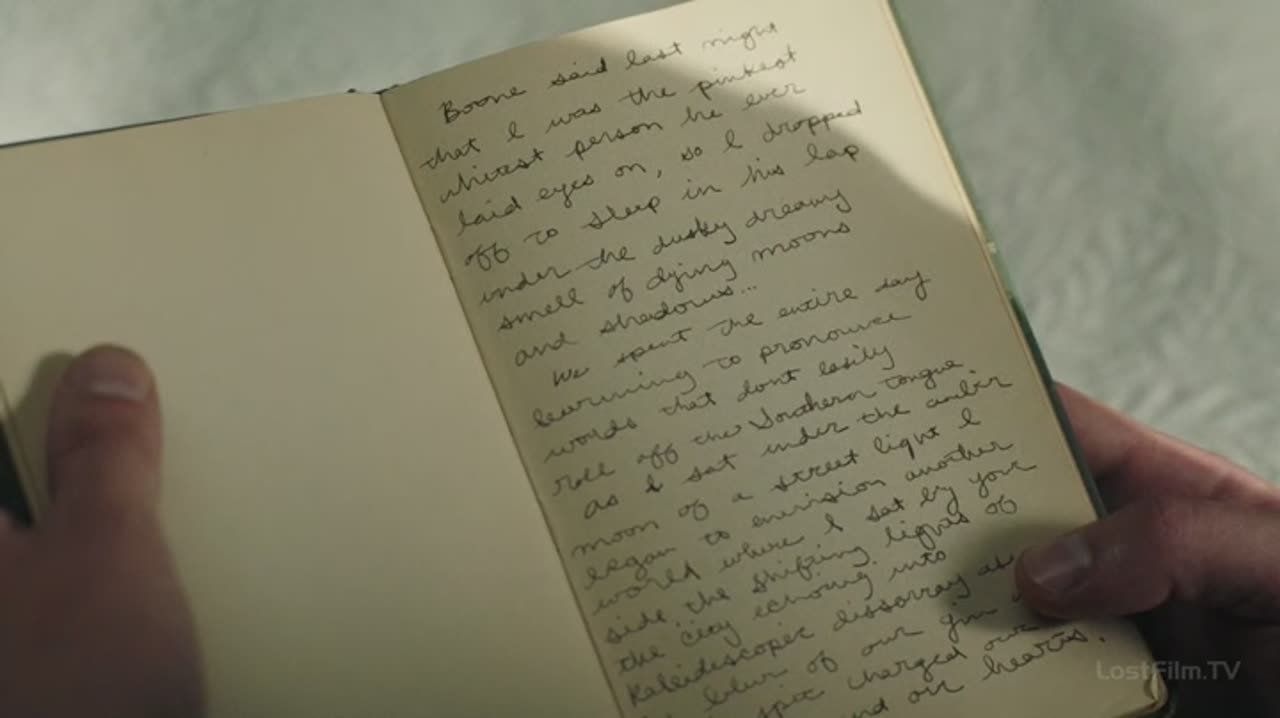 Boone said last night
that I was the pinkest
whitest person he ever
laid eyes on, so I dropped
off to sleep in his lap
under the dusky dreamy
smell of dying moons
and shadows...
We spent the entire day
learning to pronounce
words that dont easily
roll off the Southern tongue
as I sat under the amber
moon of a street light I
began to envision another
world where I sat by your
side the shifting lights of
the city echoing into
Kaleidescopic dissorray
blur of our gin
charged our
and our hearts.
LostFilm.TV